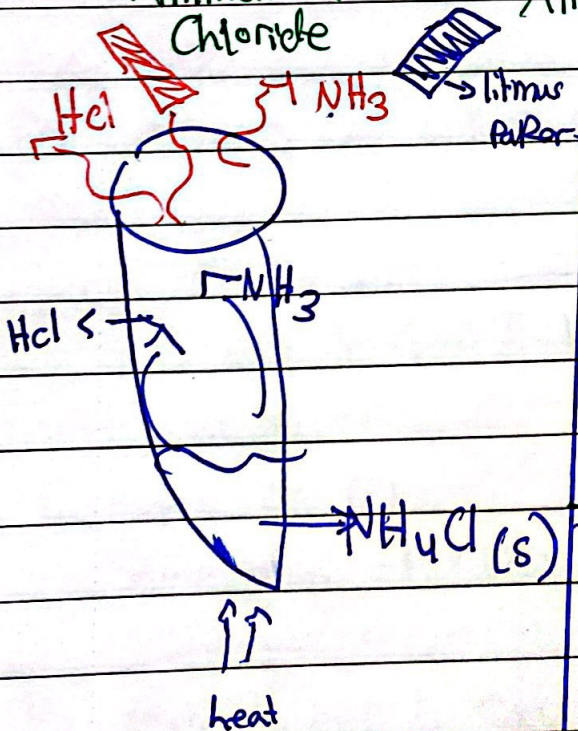 Chloride
Hcl
NH3
litmus
PaPer
NH3
Hcl
NH4Cl (s)
heat